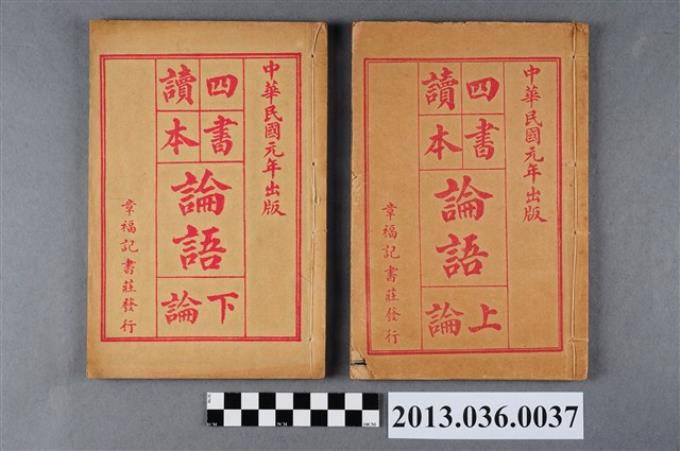 中華民國元年出版
四書
讀本
論語
下論
章福記書莊發行
中華民國元年出版
四書
讀本
論語
上論
章福記書莊發行
2013.036.0037